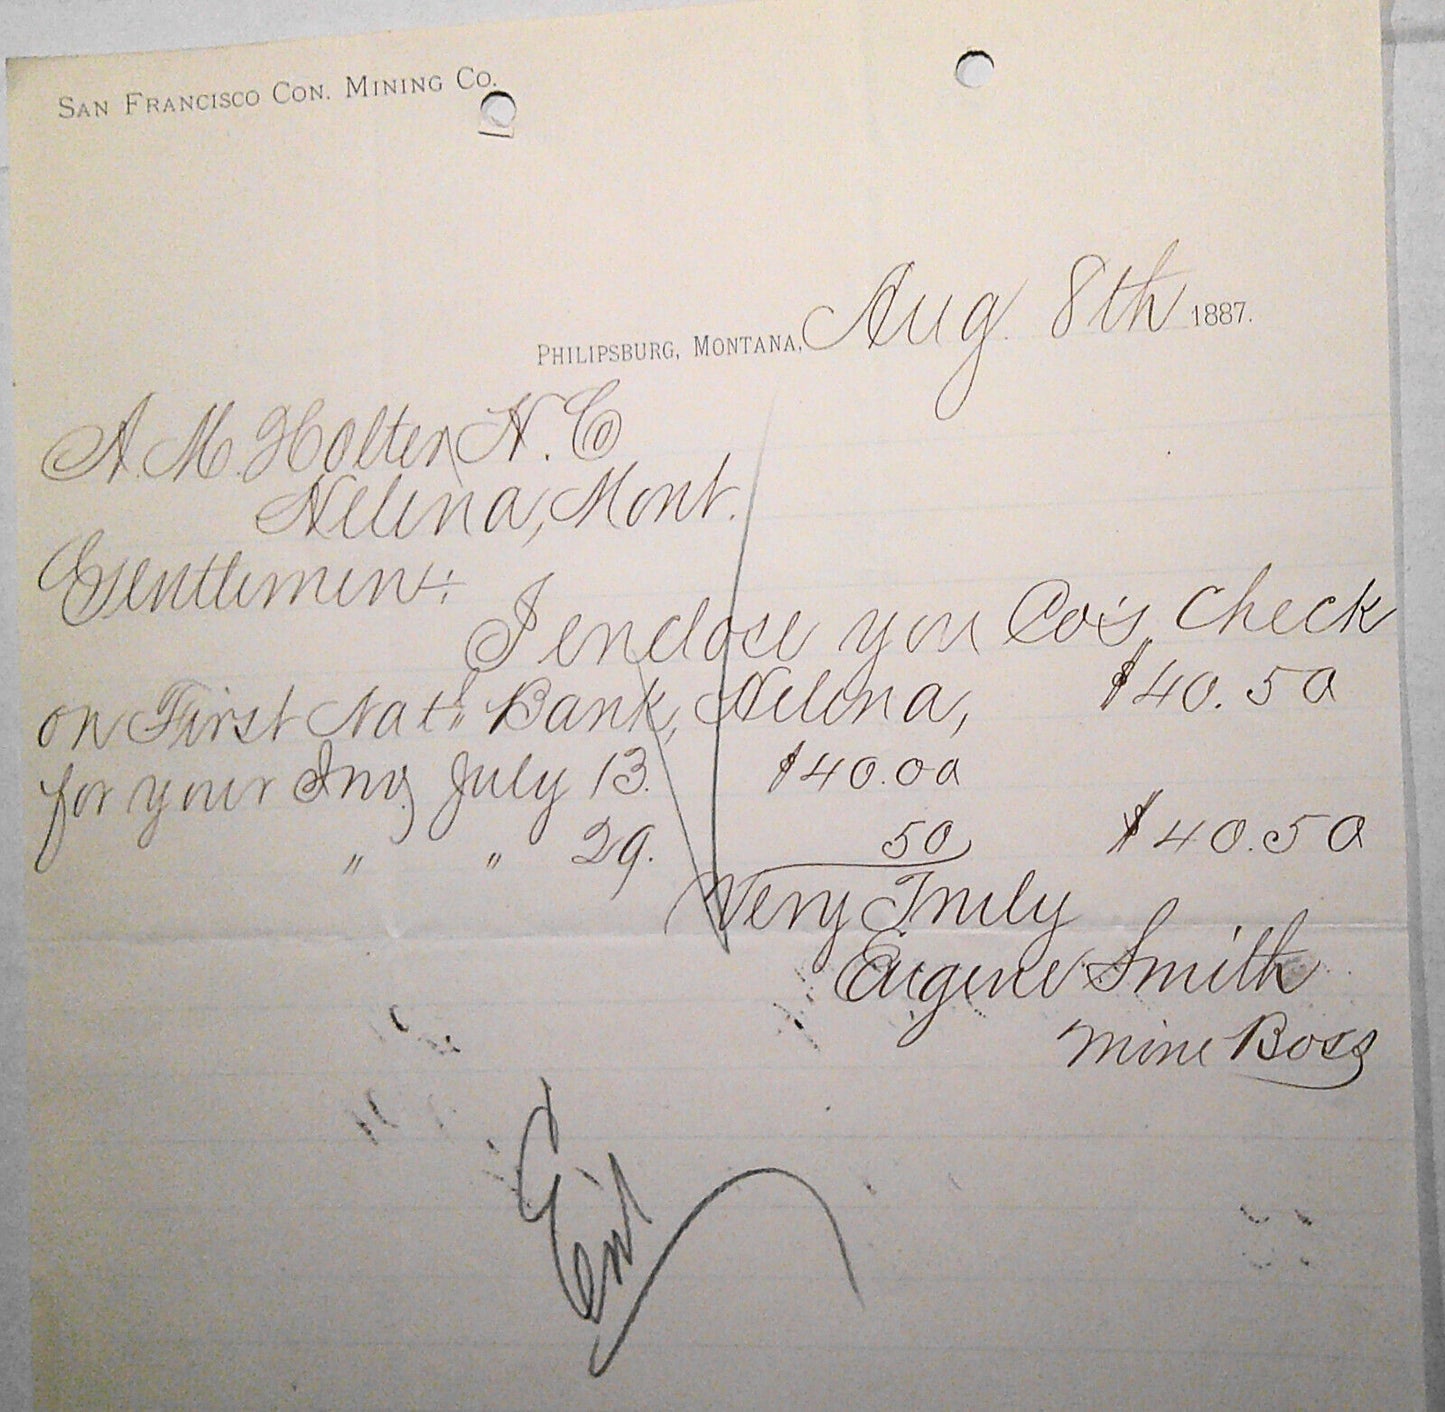 SAN FRANCISCO CON. MINING CO.
PHILIPSBURG, MONTANA, Aug 8th 1887.
A. M. Holter H. Co
Helena, Mont.
Gentlemen:
I enclose you Co's Check
on First Nat'l Bank, Helena, $40.50
for your Inv July 13. $40.00
" " 29. 50 $40.50
Very Truly
Eugene Smith
Mine Boss
Ent